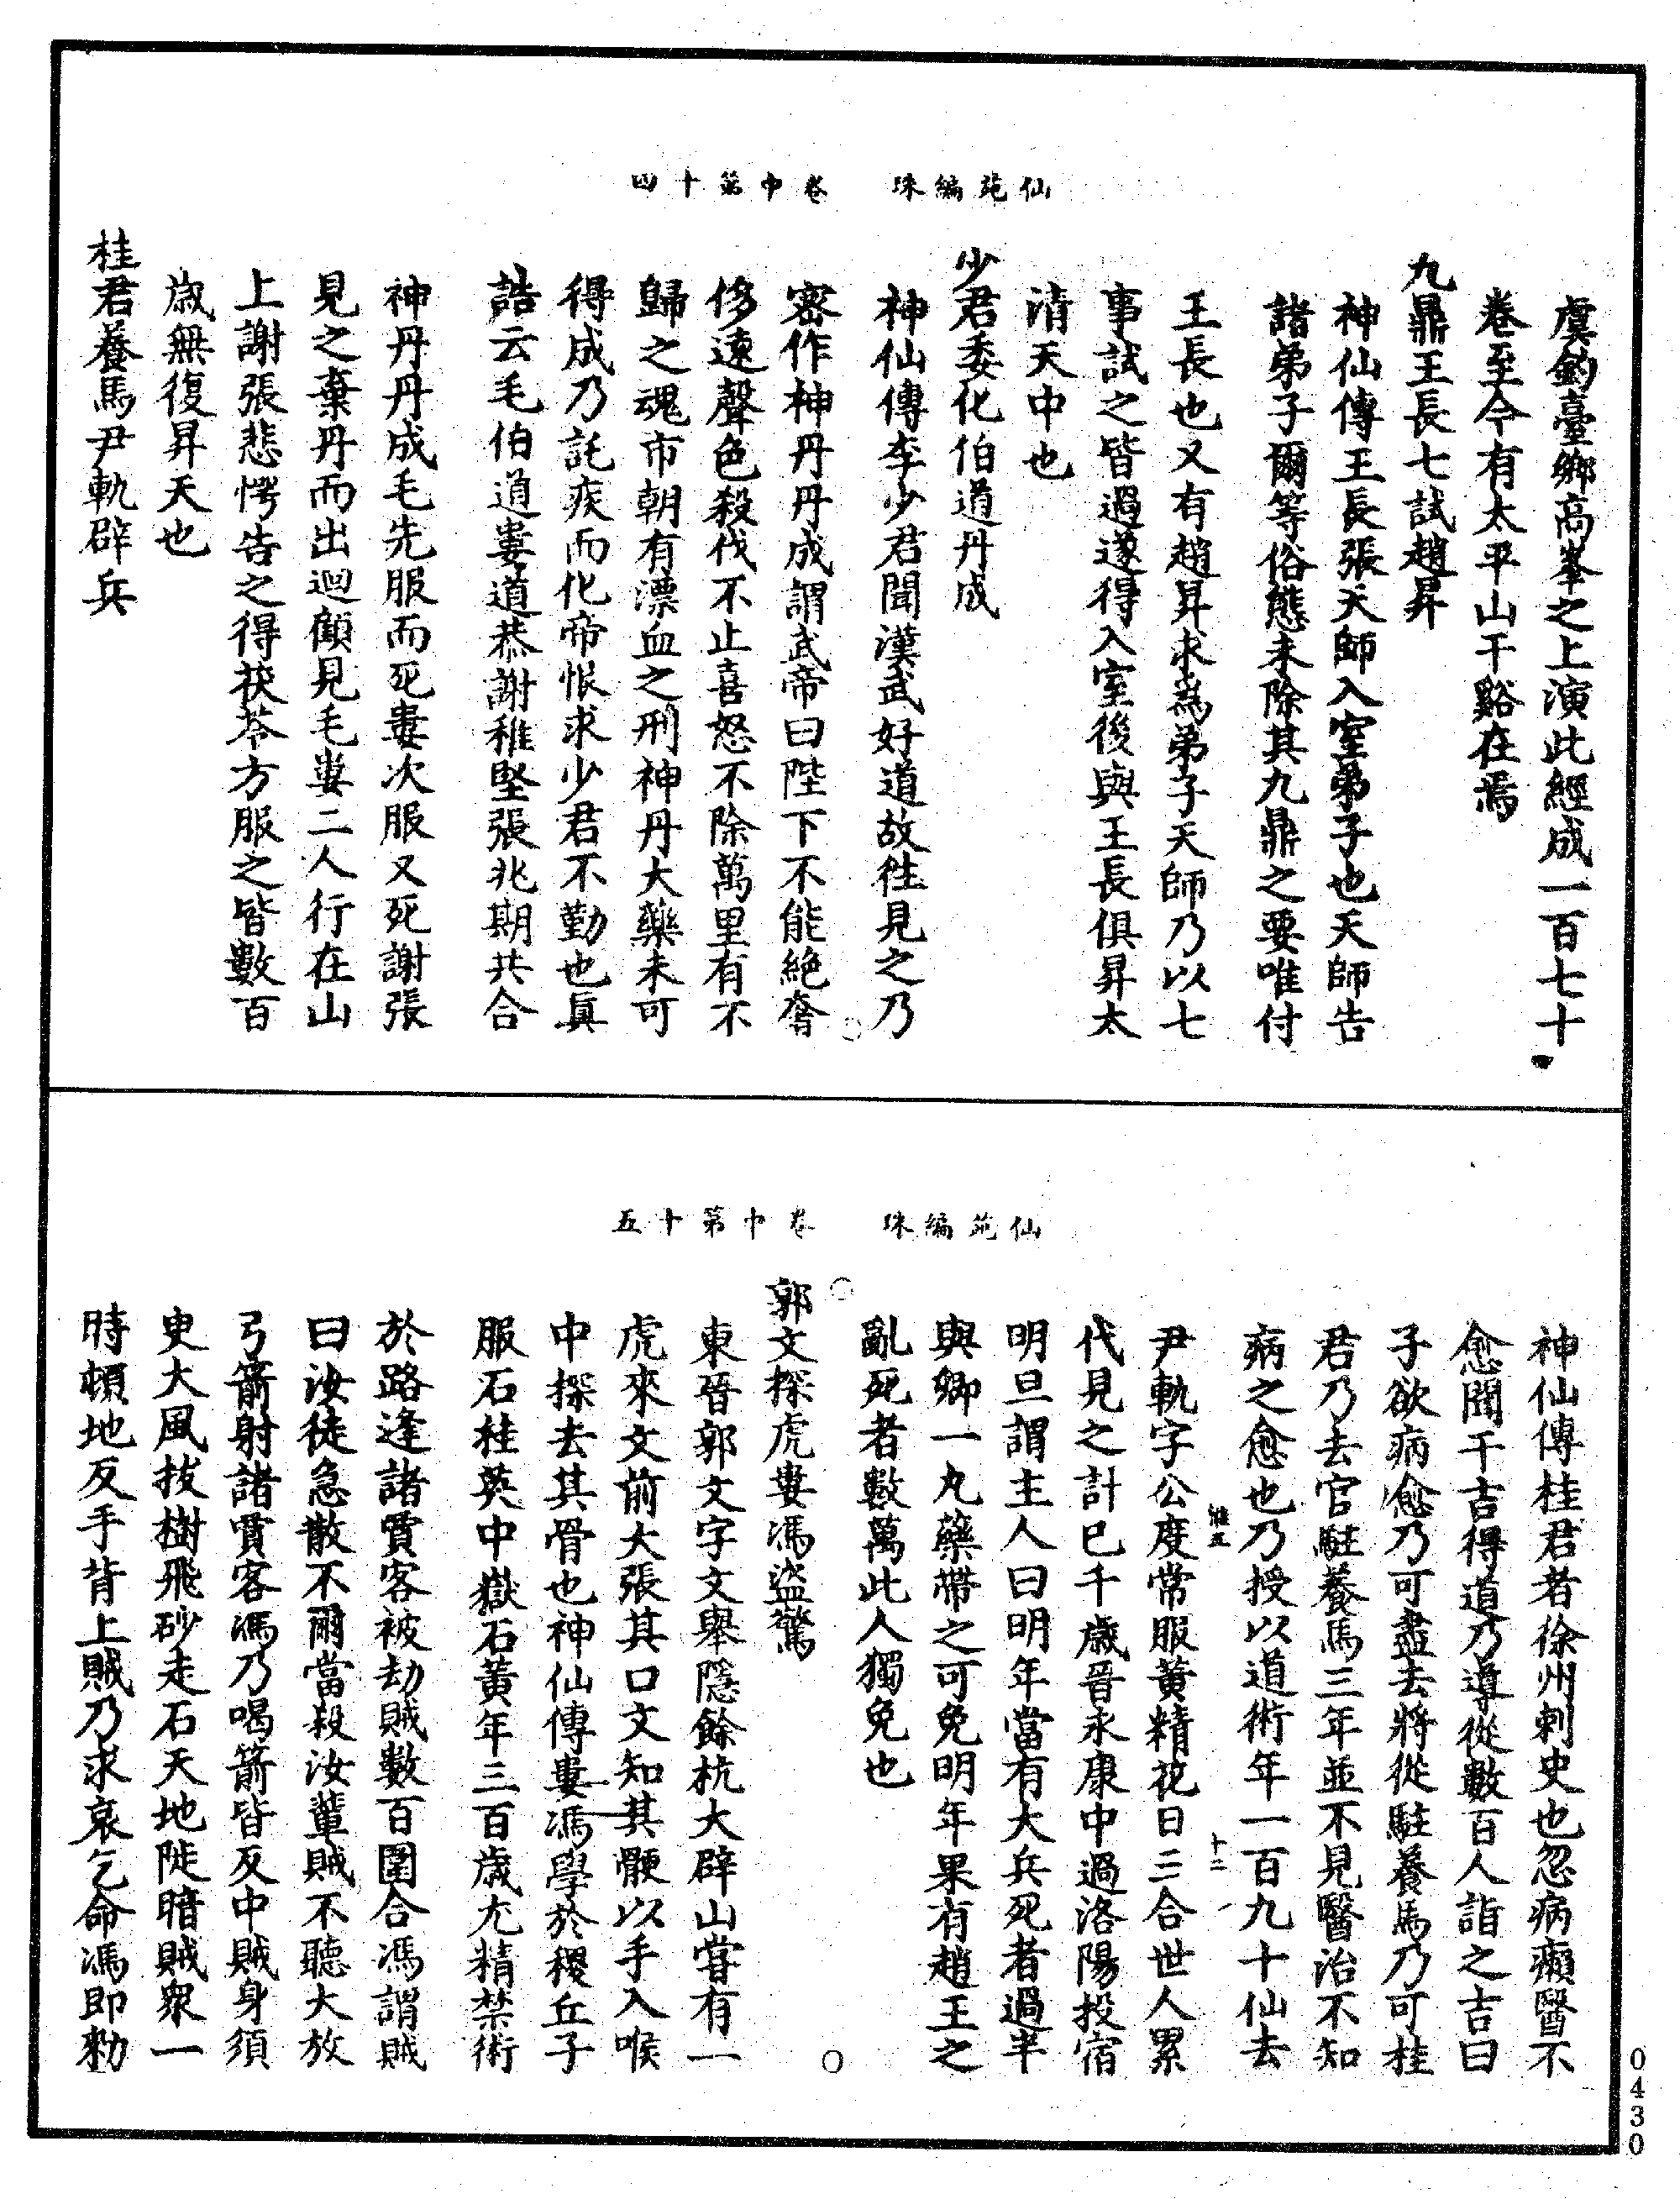 仙苑編珠　卷中第十四
虞釣臺鄉高峯之上演此經成一百七十
卷至今有太平山干谿在焉
九鼎王長七試趙昇
神仙傳王長張天師入室弟子也天師告
諸弟子爾等俗態未除其九鼎之要唯付
王長也又有趙昇求爲弟子天師乃以七
事試之皆過遂得入室後與王長俱昇太
清天中也
少君委化伯道丹成
神仙傳李少君聞漢武好道故往見之乃
密作神丹丹成謂武帝曰陛下不能絶奢
侈遠聲色殺伐不止喜怒不除萬里有不
歸之魂市朝有漂血之刑神丹大藥未可
得成乃託疾而化帝恨求少君不勤也眞
誥云毛伯道婁道恭謝稚堅張兆期共合
神丹丹成毛先服而死婁次服又死謝張
見之棄丹而出迴顧見毛婁二人行在山
上謝張悲愕告之得茯苓方服之皆數百
歲無復昇天也
桂君養馬尹軌辟兵
仙苑編珠　卷中第十五
神仙傳桂君者徐州刺史也忽病癩醫不
愈聞干吉得道乃導從數百人詣之吉曰
子欲病愈乃可盡去將從駐養馬乃可桂
君乃去官駐養馬三年並不見醫治不知
病之愈也乃授以道術年一百九十仙去
惟五　十二
尹軌字公度常服黃精花日三合世人累
代見之計巳千歲晉永康中過洛陽投宿
明旦謂主人曰明年當有大兵死者過半
與卿一丸藥帶之可免明年果有趙王之
亂死者數萬此人獨免也
郭文探虎婁馮盜驚
東晉郭文字文舉隱餘杭大辟山嘗有一
虎來文前大張其口文知其骾以手入喉
中探去其骨也神仙傳婁馮學於稷丘子
服石桂英中嶽石黃年三百歲尤精禁術
於路逢諸賈客被劫賊數百圍合馮謂賊
曰汝徒急散不爾當殺汝輩賊不聽大放
弓箭射諸賈客馮乃喝箭皆反中賊身須
臾大風拔樹飛砂走石天地陡暗賊衆一
時頓地反手背上賊乃求哀乞命馮即勑
0430